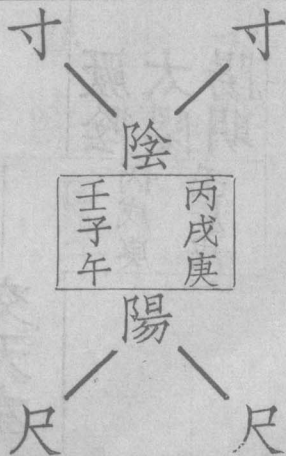 寸 寸
陰
丙戌庚
壬子午
陽
尺 尺